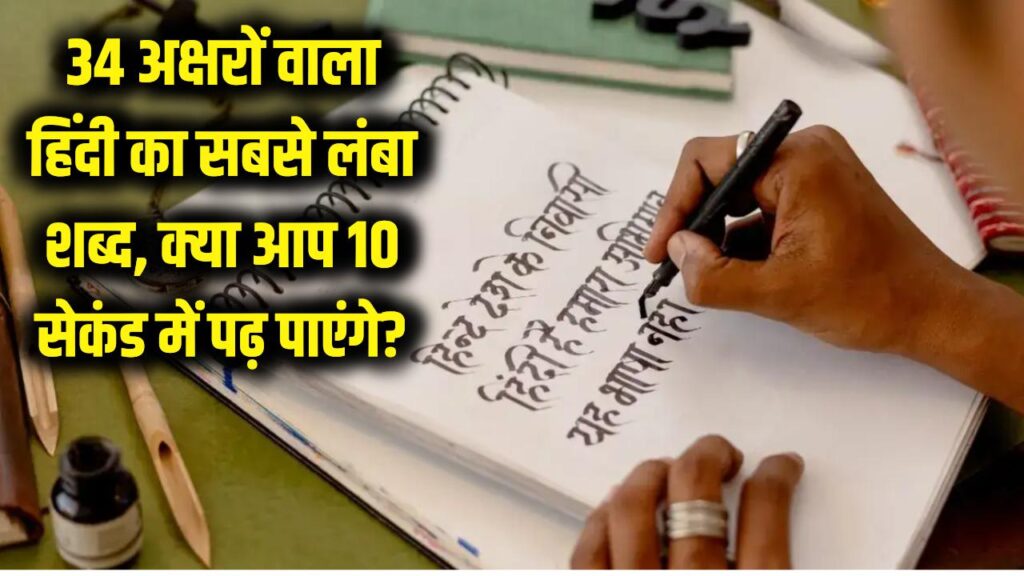 34 अक्षरों वाला
हिंदी का सबसे लंबा
शब्द, क्या आप 10
सेकंड में पढ़ पाएंगे?
हिन्द देश के निवासी
हिंदी है हमारा अभिमान
यह भाषा नहीं